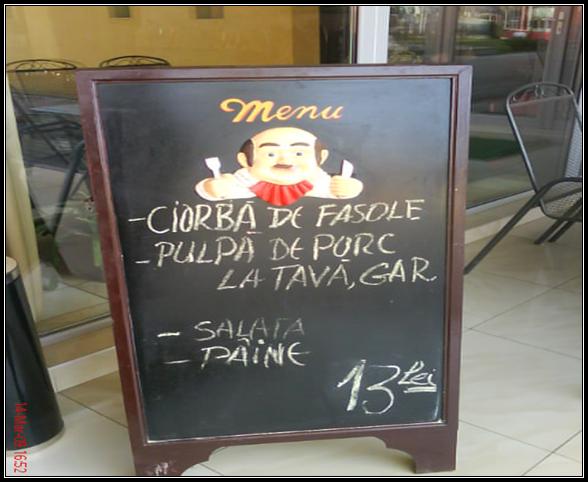 Menu
-CIORBĂ DE FASOLE
-PULPĂ DE PORC
LA TAVĂ, GAR.
- SALATA
- PÂINE
13 Lei
14-Mar-09 16:52